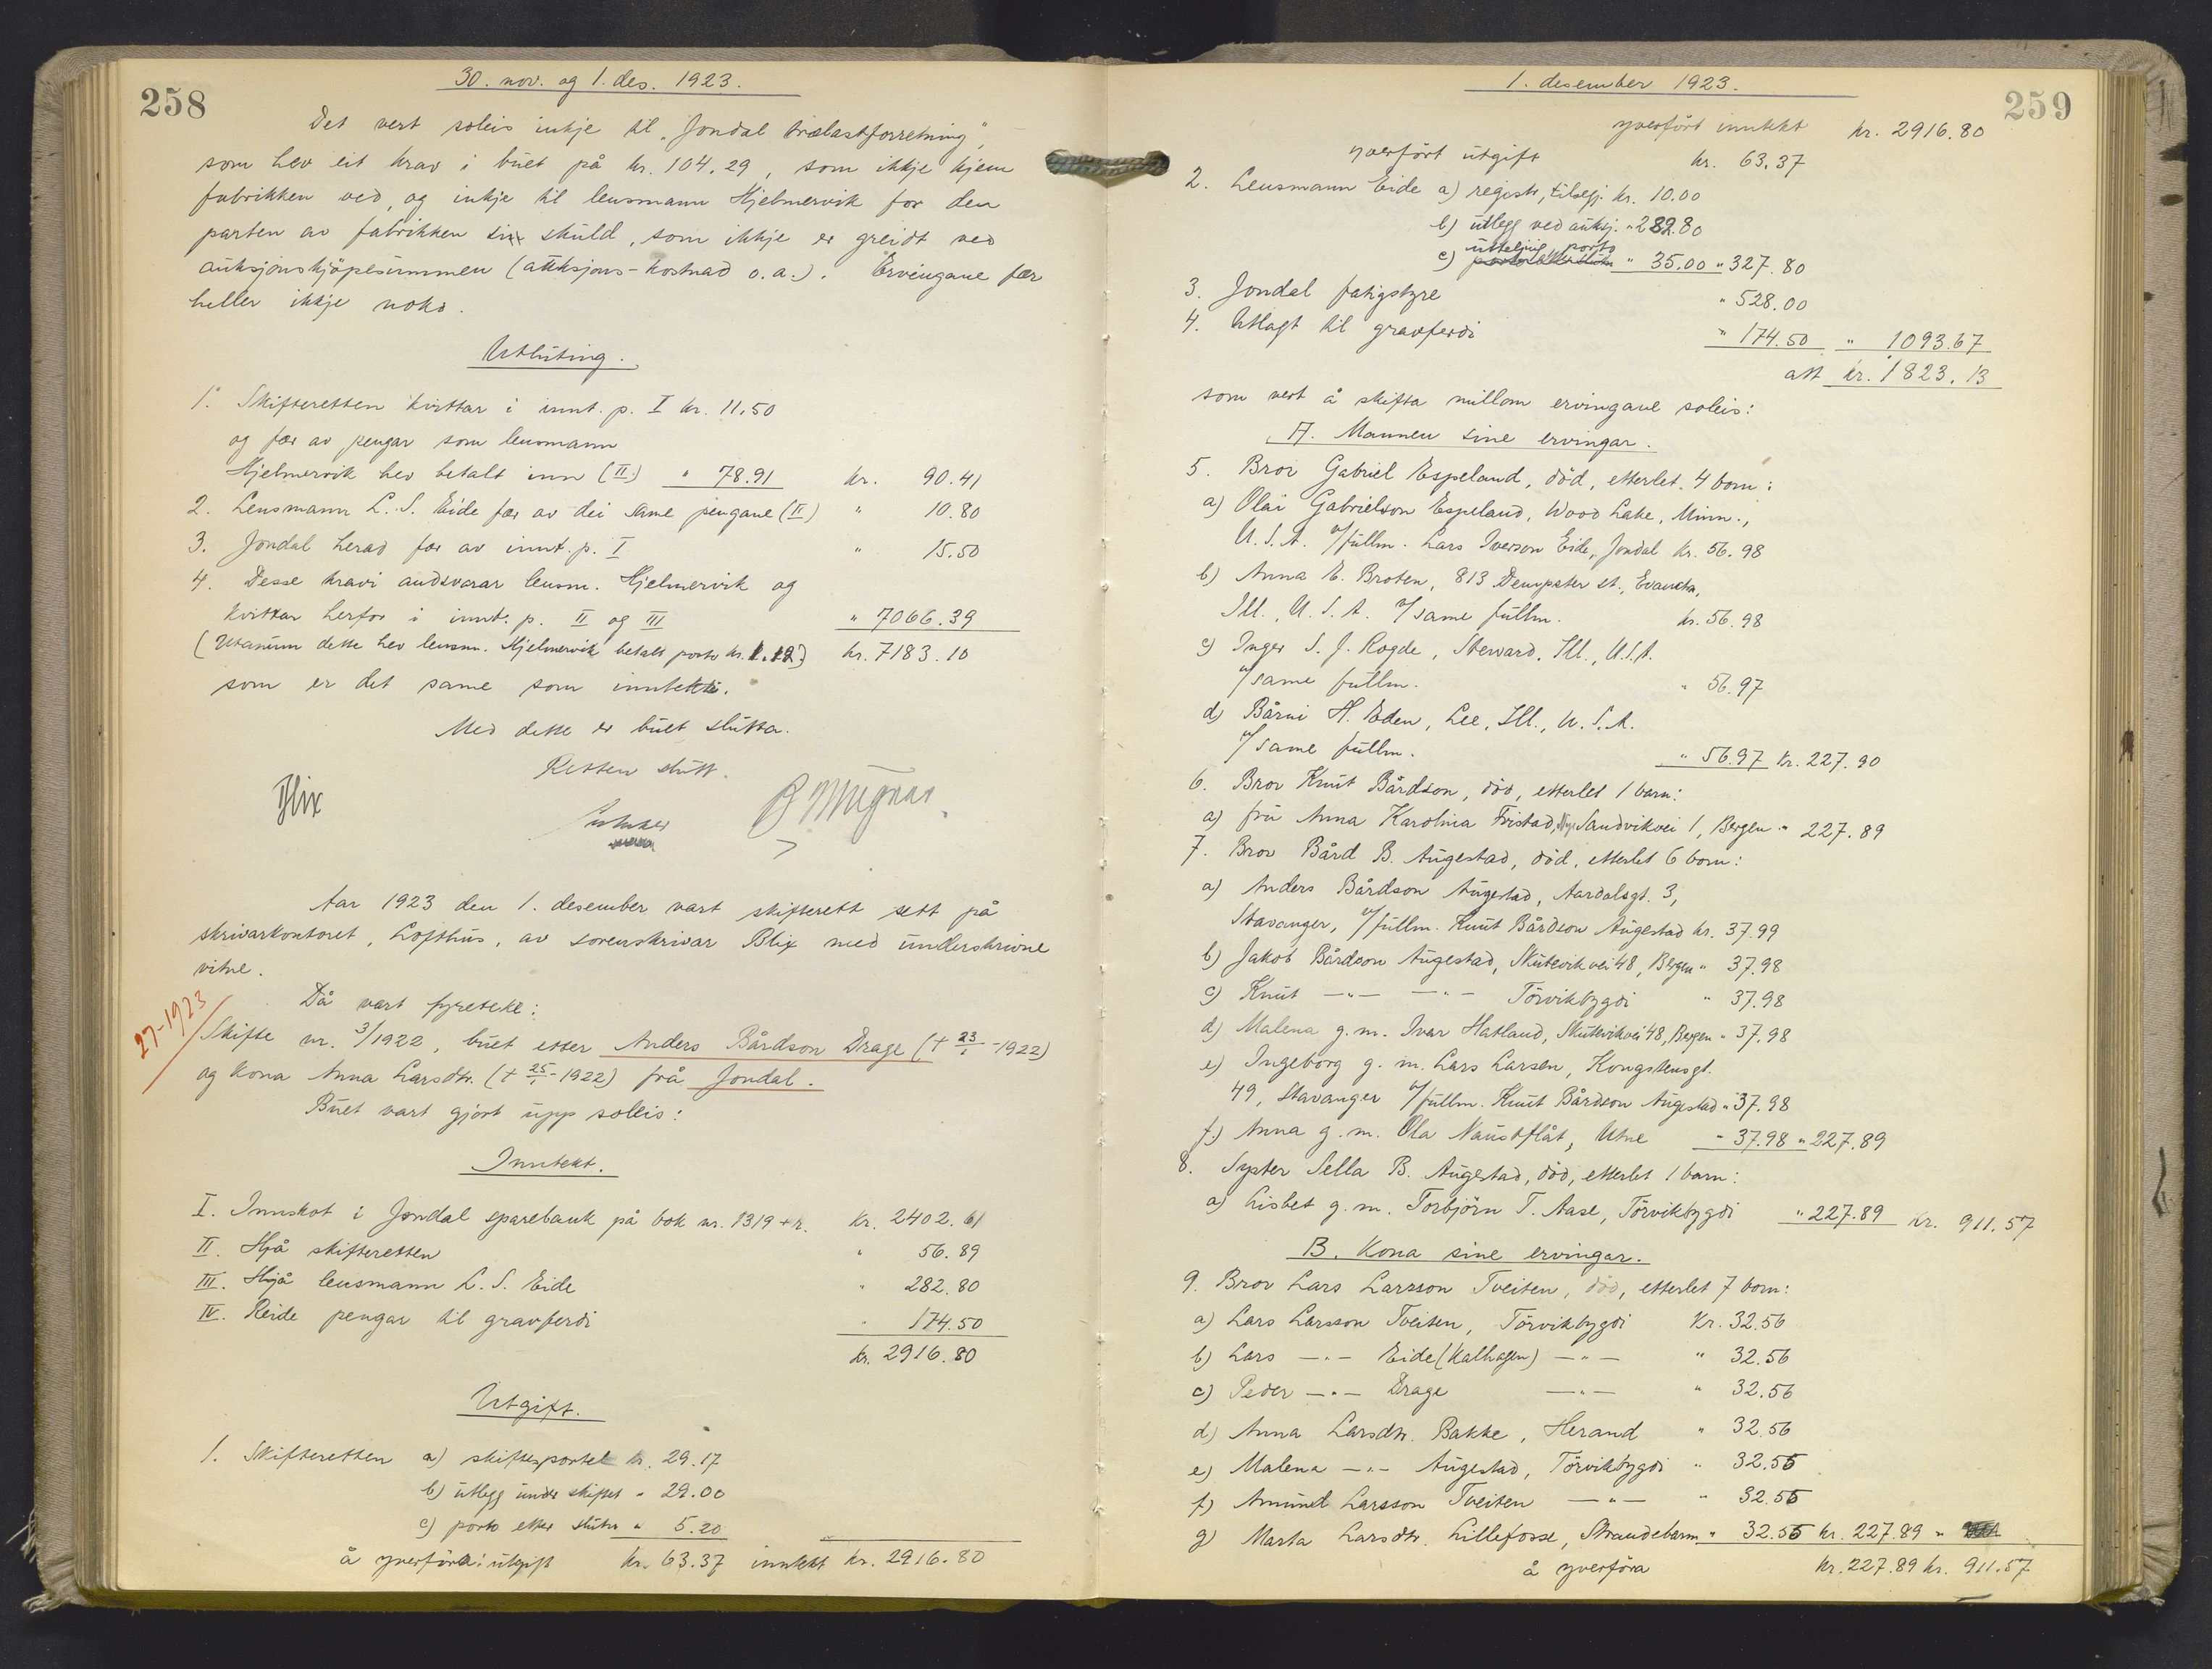 258
30. nov. og 1. des. 1923.
Det vert soleis inkje til "Jondal trælastforretning",
som hev eit krav i buet på kr. 104.29, som ikkje kjem
fabrikken ved, og inkje til lensmann Hjelmervik for den
parten av fabrikken sin skuld, som ikkje er greidt ved
auksjonskjöpesummen (auksjons-kostnad o.a.). Ervingane fær
heller ikkje noko.
Utluting.
1. Skifteretten kvittar i innt. p. I kr. 11.50
og fær av pengar som lensmann
Hjelmervik hev betalt inn (II) " 78.91 kr. 90.41
2. Lensmann L. S. Eide fær av dei same pengane (II) " 10.80
3. Jondal herad fær av innt. p. I " 15.50
4. Desse kravi andsvarar lensm. Hjelmervik og
kvittar herfor i innt. p. II og III " 7066.39
(Utanum dette hev lensm. Hjelmervik betalt porto kr. 1.12) kr. 7183.10
som er det same som inntekti.
Med dette er buet slutta.
Retten slutt.
Blix
Aar 1923 den 1. desember vart skifterett sett på
skrivarkontoret, Lofthus, av sorenskrivar Blix med underskrivne
vitne.
Då vart fyreteke:
27-1923
Skifte nr. 3/1922, buet etter Anders Bårdson Drage († 23/1-1922)
og kona Anna Larsdtr. († 25/1-1922) frå Jondal.
Buet vart gjort upp soleis:
Inntekt.
I. Innskot i Jondal sparebank på bok nr. 1319 + r. kr. 2402.61
II. Hjå skifteretten " 56.89
III. Hjå lensmann L. S. Eide " 282.80
IV. Reide pengar til gravferdi " 174.50
kr. 2916.80
Utgift.
1. Skifteretten a) skifteportel kr. 29.17
b) utlegg under skiftet " 29.00
c) porto etter slutn " 5.20
å yverföra: utgift kr. 63.37 inntekt kr. 2916.80
259
1. desember 1923.
yverfört inntekt kr. 2916.80
yverfört utgift kr. 63.37
2. Lensmann Eide a) registr, tilsegj. kr. 10.00
b) utlegg ved auksj. " 282.80
c) utteljing, porto " 35.00 " 327.80
3. Jondal fatigstyre " 528.00
4. Utlagt til gravferdi " 174.50 " 1093.67
att kr. 1823.13
som vert å skifta millom ervingane soleis:
A. Mannen sine ervingar.
5. Bror Gabriel Espeland, död, etterlet. 4 born:
a) Olai Gabrielson Espeland, Wood Lake, Minn.,
U.S.A. v/fullm. Lars Iverson Eide, Jondal kr. 56.98
b) Anna E. Broten, 813 Dempster st.,
Ill., U.S.A. v/same fullm. kr. 56.98
c) Inger S. J. Rogde, Steward, Ill., U.S.A.
v/same fullm. " 56.97
d) Bårni H. Eden, Lee, Ill., U.S.A.
v/same fullm. " 56.97 kr. 227.90
6. Bror Knut Bårdson, död, etterlet 1 barn:
a) fru Anna Karolina Fristad, Nye Sandvikvei 1, Bergen " 227.89
7. Bror Bård B. Augestad, död, etterlet 6 born:
a) Anders Bårdson Augestad, Aardalsgt. 3,
Stavanger, v/fullm. Knut Bårdson Augestad kr. 37.99
b) Jakob Bårdson Augestad, Skutevikvei 48, Bergen " 37.98
c) Knut —"— —"— Törvikbygdi " 37.98
d) Malena g.m. Ivar Hatland, Skutevikvei 48, Bergen " 37.98
e) Ingeborg g.m. Lars Larsen, Kongstensgt.
49, Stavanger v/fullm. Knut Bårdson Augestad " 37.98
f) Anna g.m. Ola Naustflåt, Utne " 37.98 " 227.89
8. Syster Sella B. Augestad, död, etterlet 1 barn:
a) Lisbet g.m. Torbjörn T. Aase, Törvikbygdi " 227.89 kr. 911.57
B. Kona sine ervingar.
9. Bror Lars Larsson Tveiten, död, etterlet 7 born:
a) Lars Larsson Tveiten, Törvikbygdi kr. 32.56
b) Lars —"— Eide (Kalhagen) —"— " 32.56
c) Peder —"— Drage —"— " 32.56
d) Anna Larsdtr. Bakke, Herand " 32.56
e) Malena —"— Augestad, Törvikbygdi " 32.55
f) Amund Larsson Tveiten —"— " 32.55
g) Marta Larsdtr. Lillefosse, Strandebarm " 32.55 kr. 227.89 "
å yverföra kr. 227.89 kr. 911.57